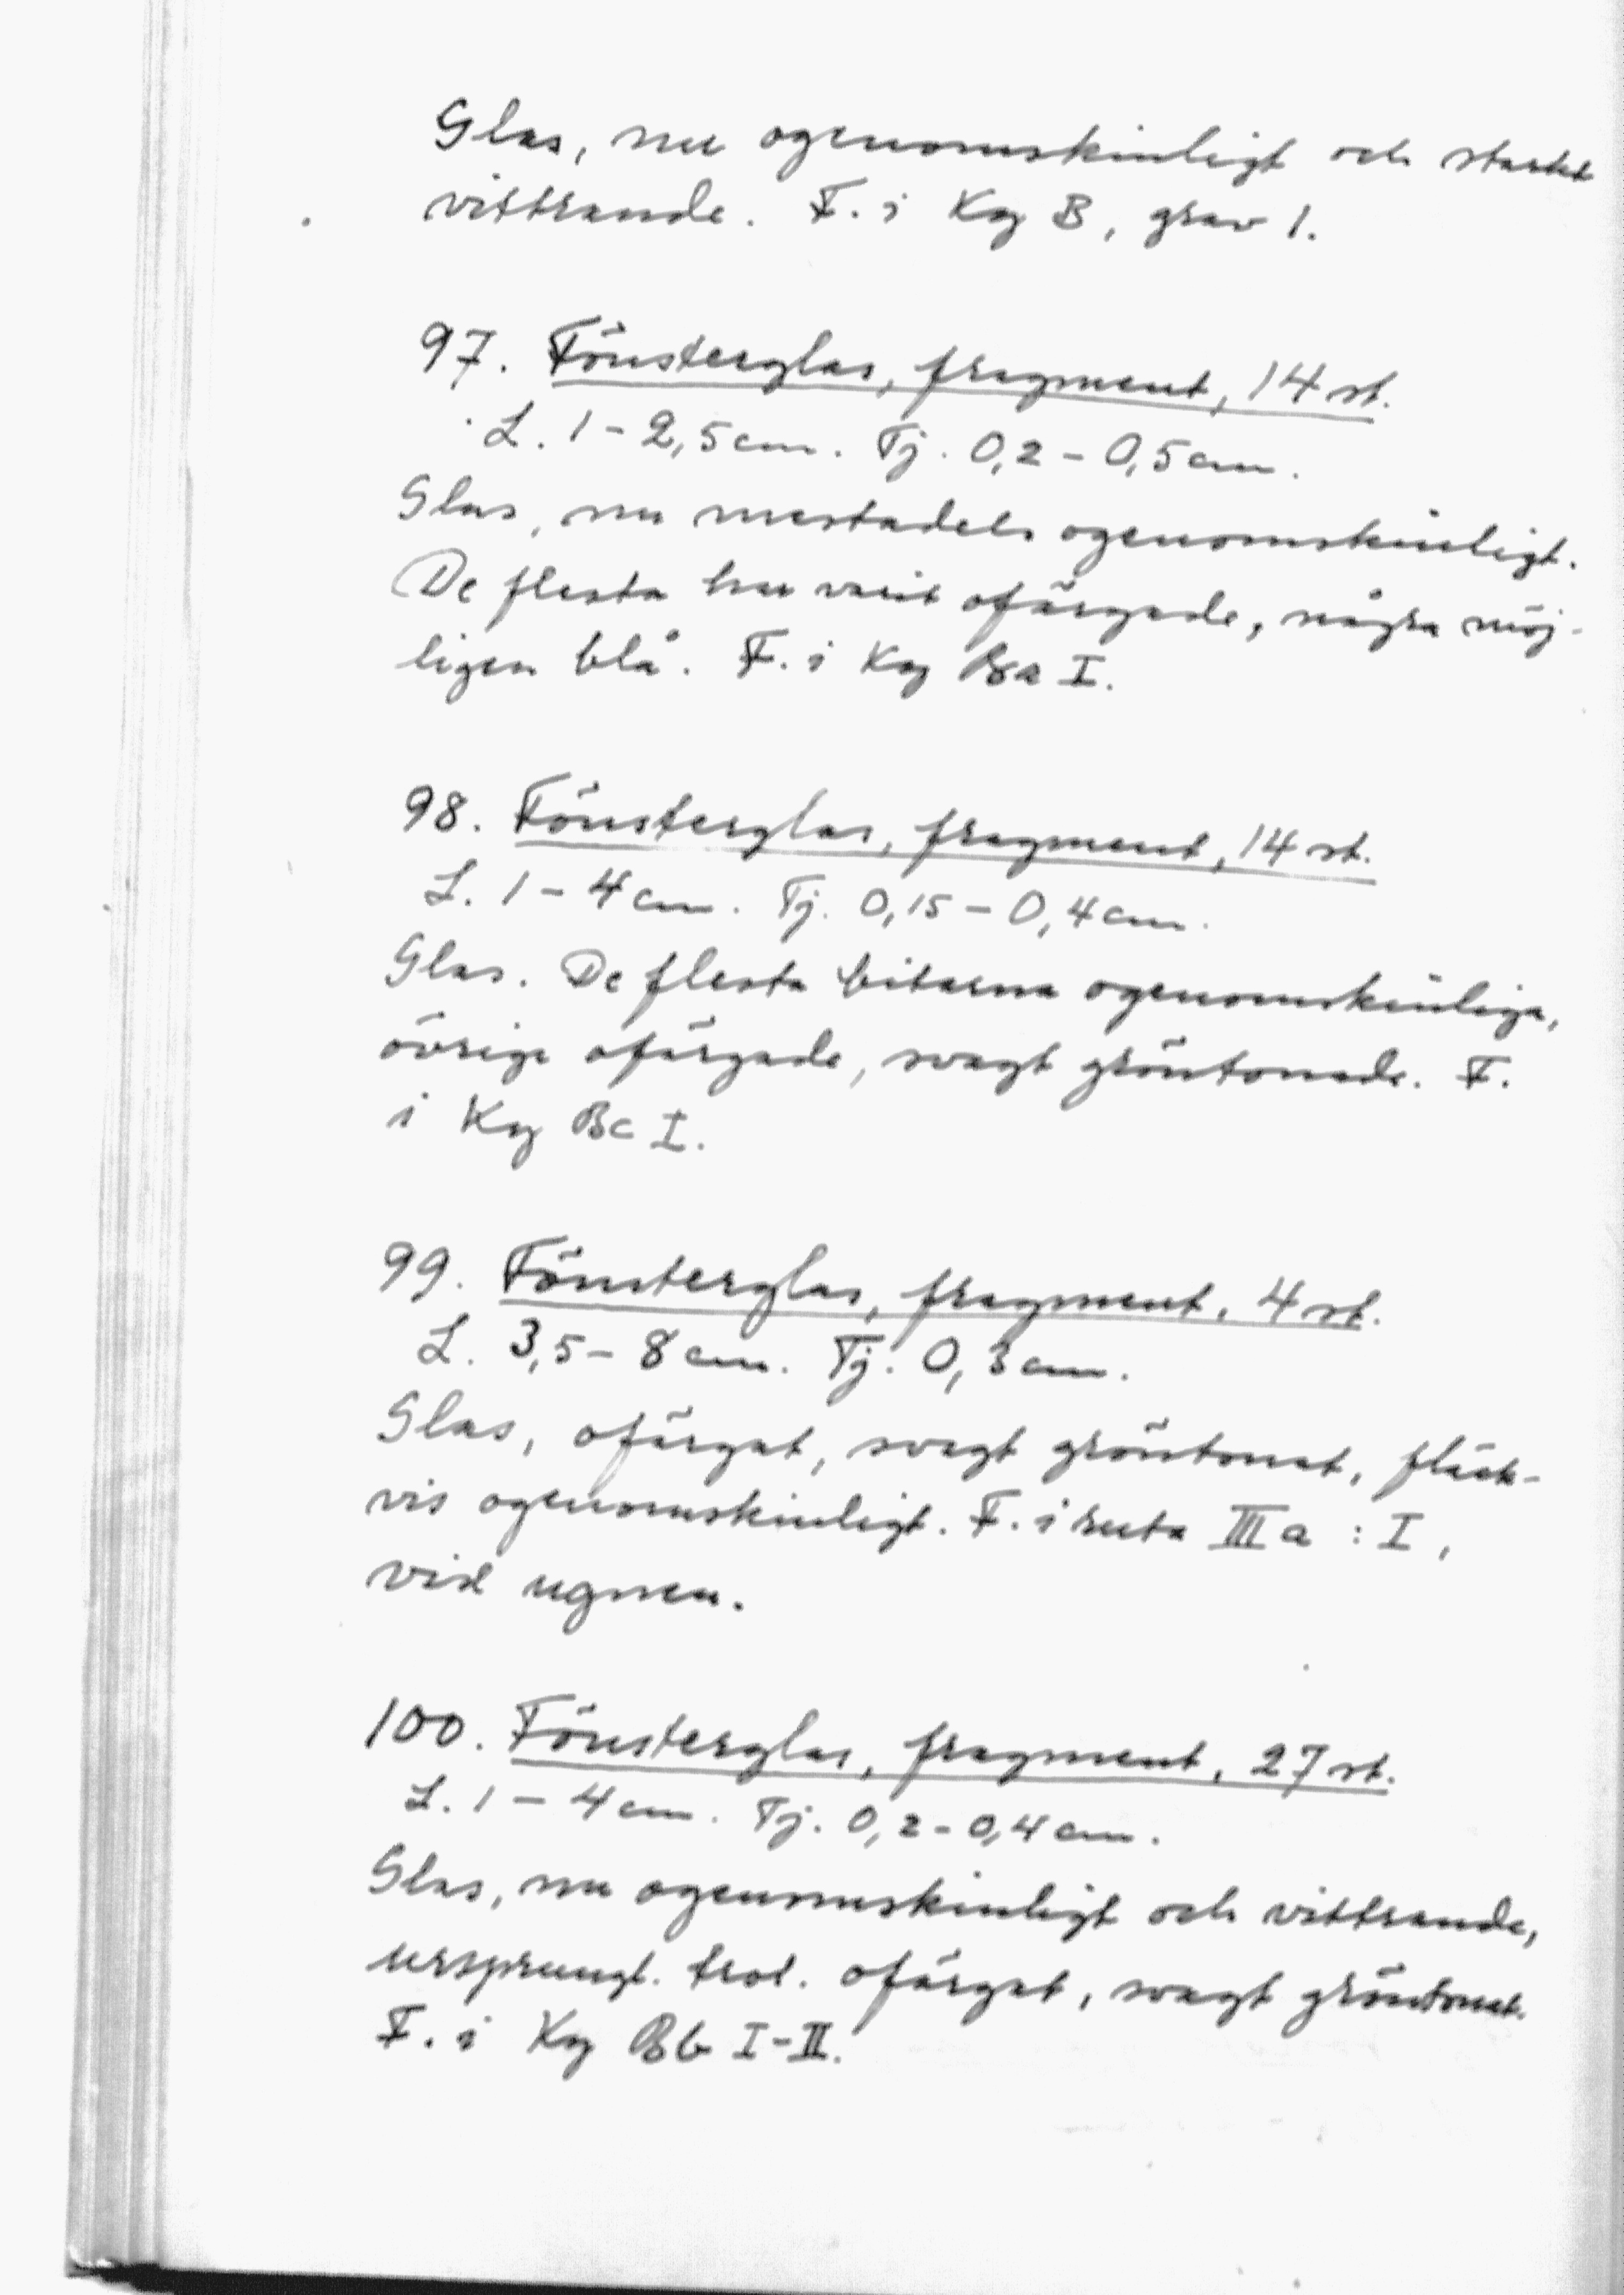 Glas, nu ogenomskinligt och starkt
vittrande. F. i Kg B, grav 1.
97. Fönsterglas, fragment, 14 st.
L. 1-2,5 cm. Tj. 0,2-0,5 cm.
Glas, nu mestadels ogenomskinligt.
De flesta har varit ofärgade, några möj-
ligen blå. F. i Kg Ba I.
98. Fönsterglas, fragment, 14 st.
L. 1-4 cm. Tj. 0,15-0,4 cm.
Glas. De flesta bitarna ogenomskinliga,
övriga ofärgade, svagt gröntonade. F.
i Kg Bc I.
99. Fönsterglas, fragment, 4 st.
L. 3,5-8 cm. Tj. 0,3 cm.
Glas, ofärgat, svagt gröntonat, fläck-
vis ogenomskinligt. F. i ruta III a : I,
vid ugnen.
100. Fönsterglas, fragment, 27 st.
L. 1-4 cm. Tj. 0,2-0,4 cm.
Glas, nu ogenomskinligt och vittrande,
ursprungl. trol. ofärgat, svagt gröntonat.
F. i Kg Bb I-II.